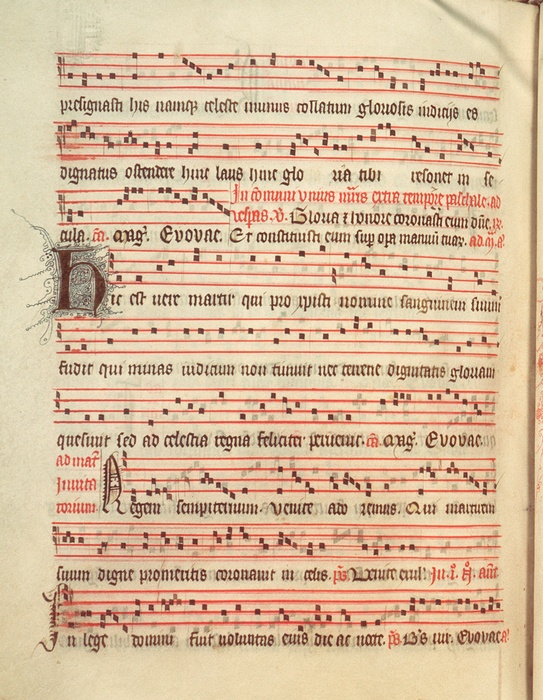 presignasti his namque celeste munus collatum gloriosis indicijs es
dignatus ostendere hinc laus hinc glo ria tibi resonet in se
In comuni unius mris extra tempus paschale. ad
vesperas. v. Gloria et honore coronasti eum dne. R.
cula. ca. mag. Evovae. Et constituisti eum sup opa manuum tuar. ad m. a.
Hic est vere martir qui pro xpisti nomine sanguinem suum
fudit qui minas iudicum non timuit nec terrene dignitatis gloriam
quesivit sed ad celestia regna feliciter pervenit. ca. mag. Evovae.
ad mat
Invita
torium
Regem sempiternum. Venite ado remus. Qui martirem
suum digne promeritis coronavit in celis. ps. Venite exul. In i. n. ant
In lege domini fuit voluntas eius die ac nocte. ps. Bs vir. Evovae a.